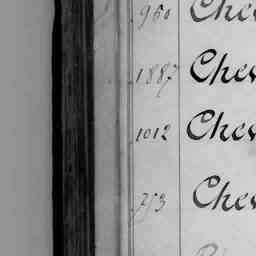 960 Chev
1887 Chev
1012 Chev
753 Chev